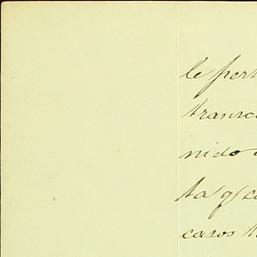 le pert
transc
nido
ta q/ co
casos t